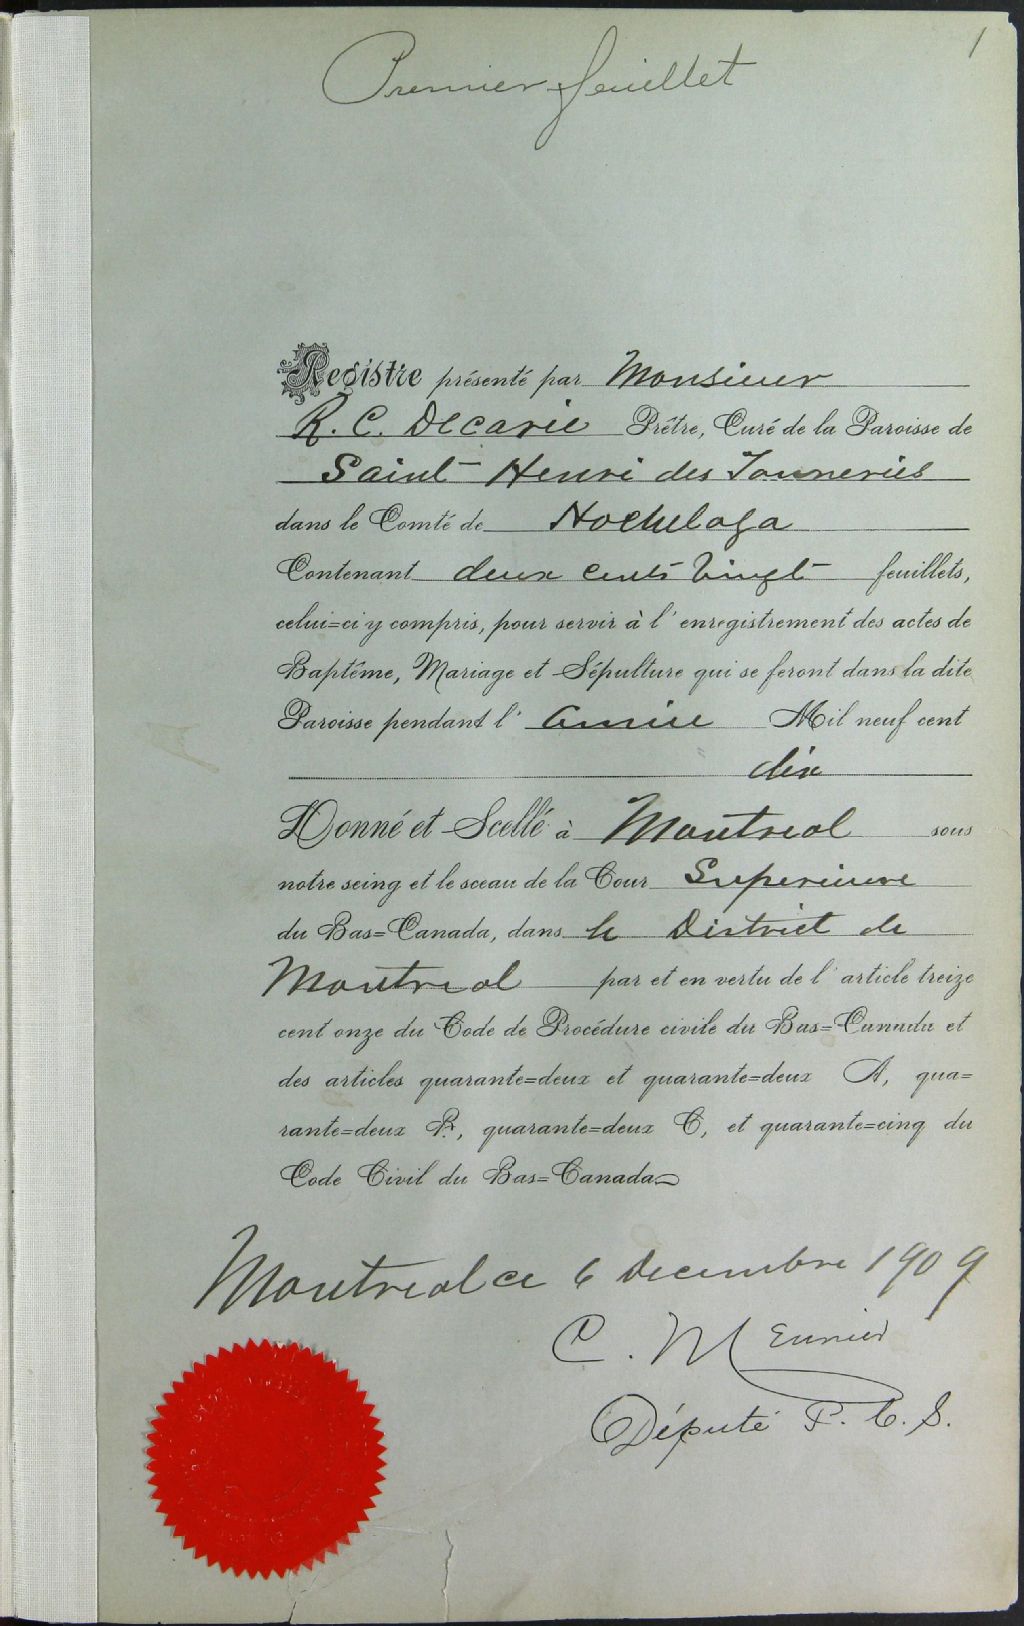 1
Premier feuillet
Registre présenté par Monsieur
R. C. Decarie Prêtre, Curé de la Paroisse de
Saint-Henri des Tanneries
dans le Comté de Hochelaga
Contenant deux cents vingt feuillets,
celui=ci y compris, pour servir à l'enregistrement des actes de
Baptême, Mariage et Sépulture qui se feront dans la dite
Paroisse pendant l'année Mil neuf cent
dix
Donné et Scellé à Montreal sous
notre seing et le sceau de la Cour Superieure
du Bas=Canada, dans le District de
Montreal par et en vertu de l'article treize
cent onze du Code de Procédure civile du Bas=Canada et
des articles quarante=deux et quarante=deux A, qua=
rante=deux B, quarante=deux C, et quarante=cinq du
Code Civil du Bas=Canada
Montreal ce 6 Decembre 1909
C. Meunier
Député P. C. S.